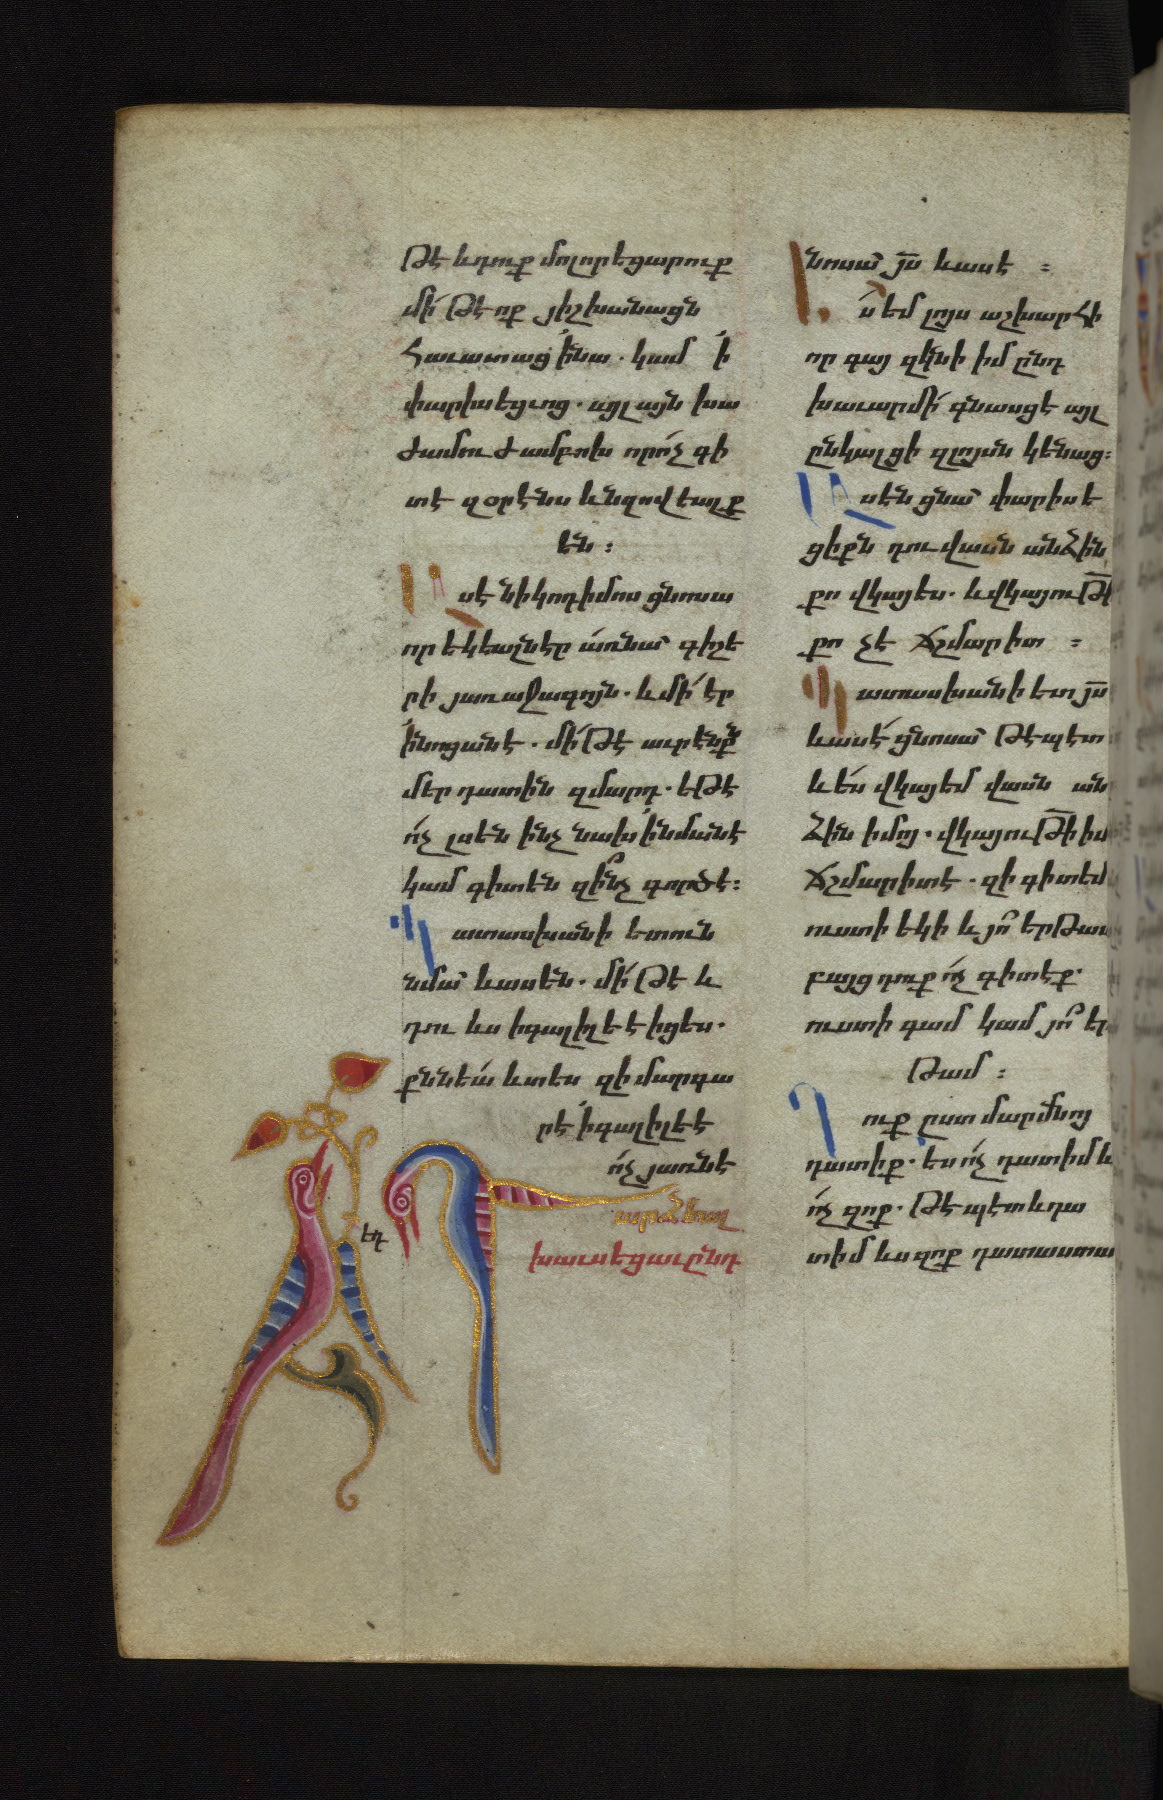 թէ և դուք մոլորեցարուք
մի՛ թէ ոք յիշխանացն
հաւատաց ի՛նա. կամ ի՛
փարիսեցւոց. այլ այն խա
ժամուժ ամբոխ որ ո՛չ գի
տէ զօրէնս և նզովեալք
են :
Ասէ նիկոդիմոս ցնոսա
որ եկեալն էր առ նա գիշե
րի յառաջագոյն. և մի՛ էր
ի՛նոցանէ. մի՛ թէ աւրէնք
մեր դատին զմարդ. եթէ
ո՛չ լսեն ինչ նախ ի՛նմանէ
կամ գիտեն զի՞նչ գործէ :
Պատասխանի ետուն
նմա և ասեն. մի՛ թէ և
դու ևս ի գալիլեէ իցես.
քննեա՛ և տես զի մարգա
րէ ի՛ գալիլեէ
ո՛չ յառնէ
եդ
խաւսեցաւ ընդ
նոսա յս̅ և ասէ :
Ես եմ լոյս աշխարհի
որ գայ զկնի իմ ընդ
խաւար մի՛ գնասցէ այլ
ընկալցի զլոյսն կենաց :
Ասեն ցնա փարիսե
ցիքն դու վասն անձին
քո վկայես. և վկայութի̅
քո չէ ճշմարիտ :
Պատասխանի ետ յս̅
և ասէ ցնոսա թէպէտ
և ես վկայեմ վասն ան
ձին իմոյ. վկայութի̅ իմ
ճշմարիտ է. զի գիտեմ
ուստի եկի և յո՞ երթամ
բայց դուք ո՛չ գիտէք.
ուստի գամ կամ յո՞ եր
թամ :
Դուք ըստ մարմնոյ
դատիք. ես ո՛չ դատիմ և
ո՛չ զոք. թէպէտ և դա
տիմ ևս զոք դատաստա